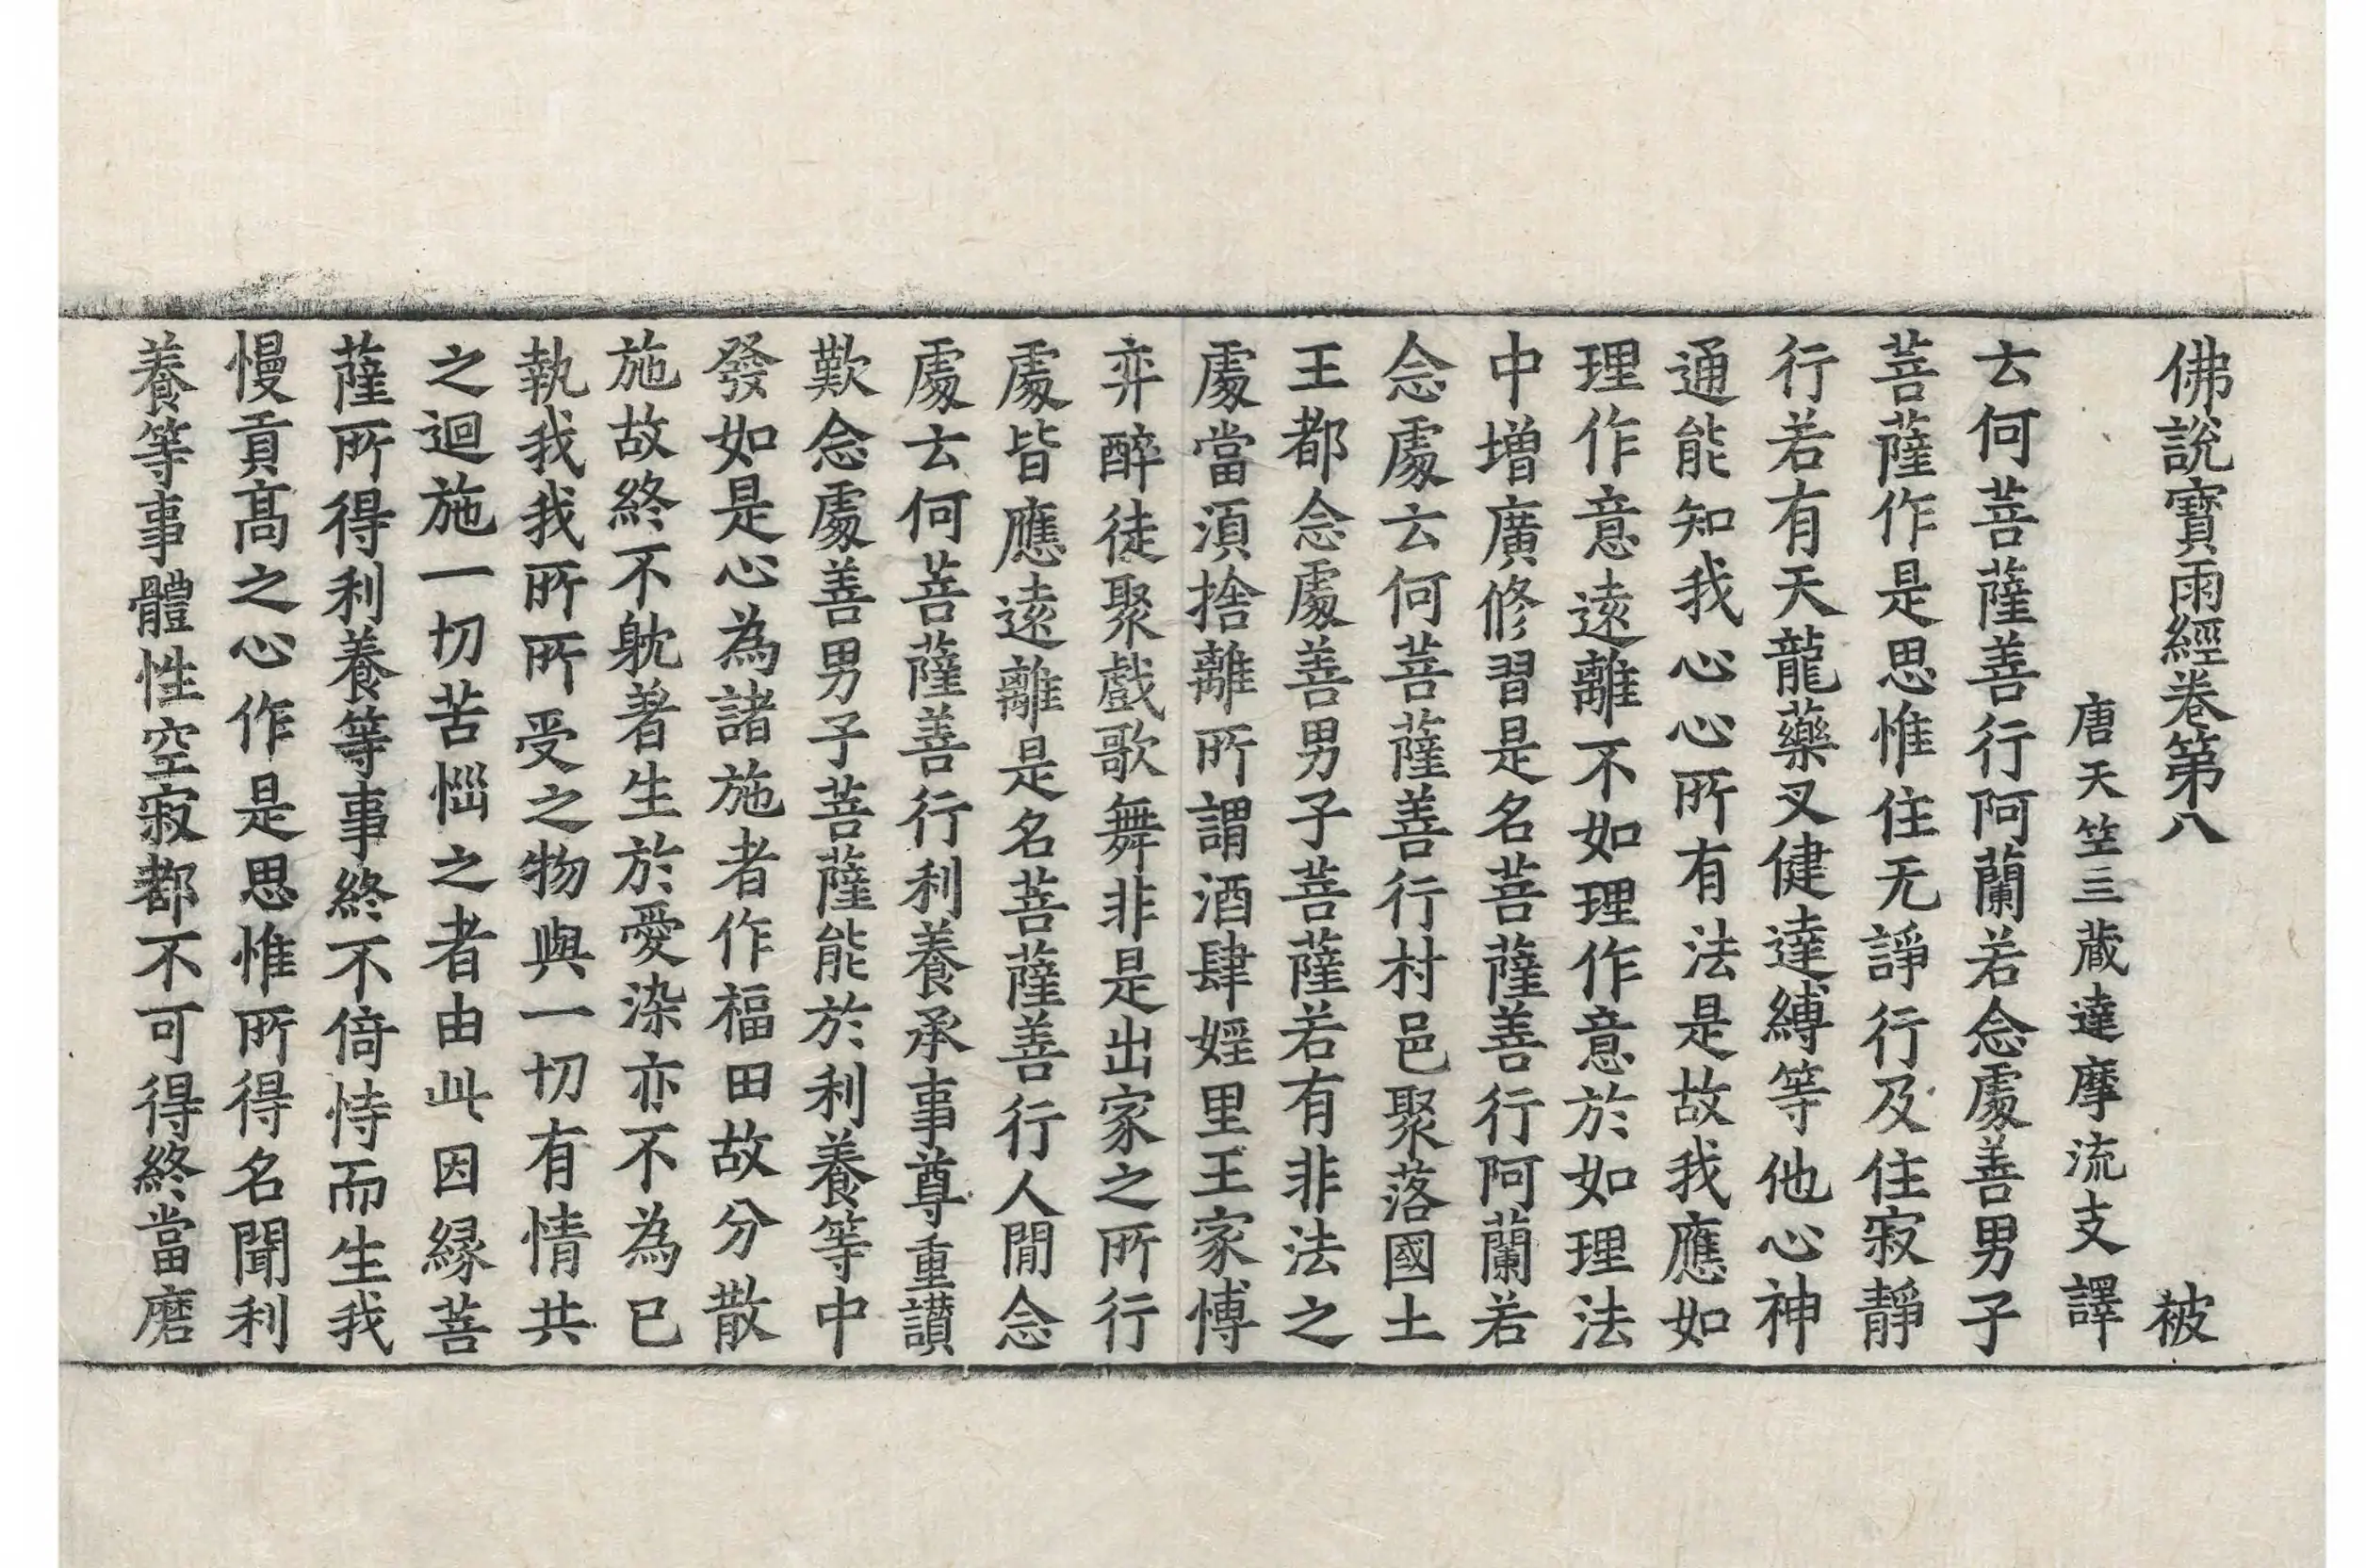 佛說寳雨經卷第八 被
唐天竺三藏達摩流支譯
云何菩薩善行阿蘭若念處善男子
菩薩作是思惟住无諍行及住寂靜
行若有天龍藥叉健達縛等他心神
通能知我心心所有法是故我應如
理作意遠離不如理作意於如理法
中增廣修習是名菩薩善行阿蘭若
念處云何菩薩善行村邑聚落國土
王都念處善男子菩薩若有非法之
處當須捨離所謂酒肆婬里王家博
弈醉徒聚戲歌舞非是出家之所行
處皆應遠離是名菩薩善行人間念
處云何菩薩善行利養承事尊重讃
歎念處善男子菩薩能於利養等中
發如是心為諸施者作福田故分散
施故終不躭著生於愛染亦不為已
執我我所所受之物與一切有情共
之迴施一切苦惱之者由此因緣菩
薩所得利養等事終不倚恃而生我
慢貢髙之心作是思惟所得名聞利
養等事體性空寂都不可得終當磨